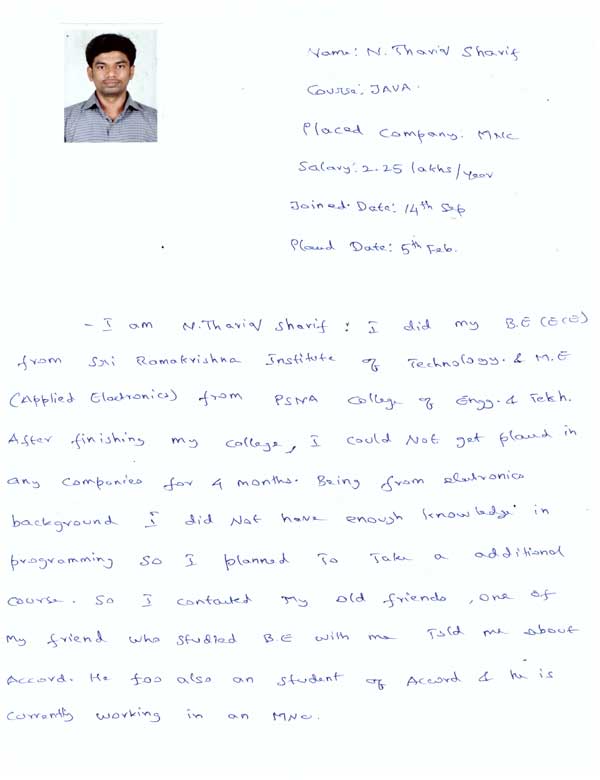 Name: N. Thariq Sharif
Course: JAVA.
Placed Company. MNC
Salary: 2.25 lakhs/year
Joined Date: 14th Sep
Placed Date: 5th Feb.
- I am N. Thariq Sharif : I did my B.E (ECE)
from Sri Ramakrishna Institute of Technology. & M.E
(Applied Electronics) from PSNA College of Engg. & Tekh.
After finishing my college, I could Not get placed in
any companies for 4 months. Being from eletronics
background I did Not have enough knowledge in
programming so I planned To Take a additional
course. So I contacted my old friends, one of
My friend who studied B.E with me Told me about
Accord. He too also an student of Accord & he is
currently working in an MNC.